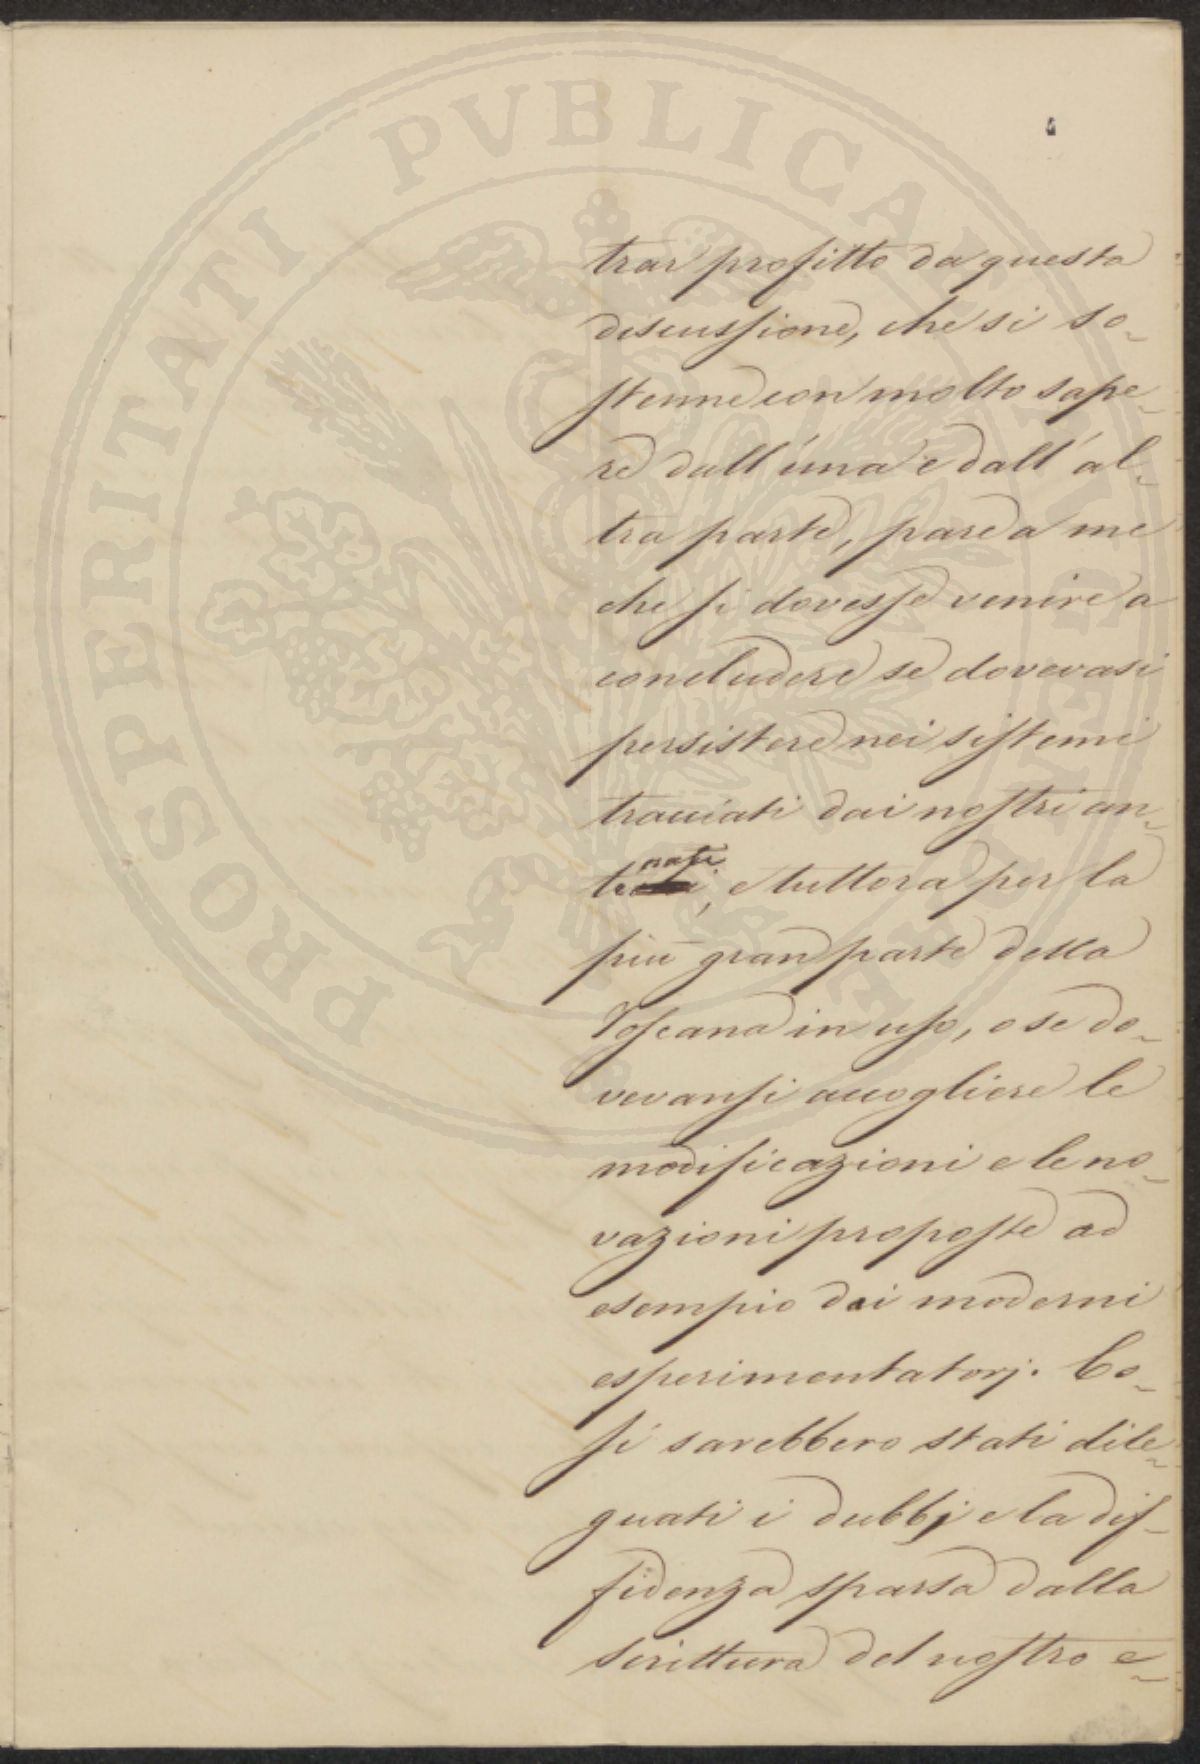 PROSPERITATI PVBLICAE AVGENDAE
trar profitto da questa
discussione, che si so-
stenne con molto sape-
re dall'una e dall'al-
tra parte, pare a me
che si dovesse venire a
concludere se dovevasi
persistere nei sistemi
tracciati dai nostri an-
nati
te, e tuttora per la
più gran parte della
Toscana in uso, o se do-
vevansi accogliere le
modificazioni e le no-
vazioni proposte ad
esempio dai moderni
esperimentatorj. Co-
si sarebbero stati dile-
guati i dubbj e la dif-
fidenza sparsa dalla
scrittura del nostro e-